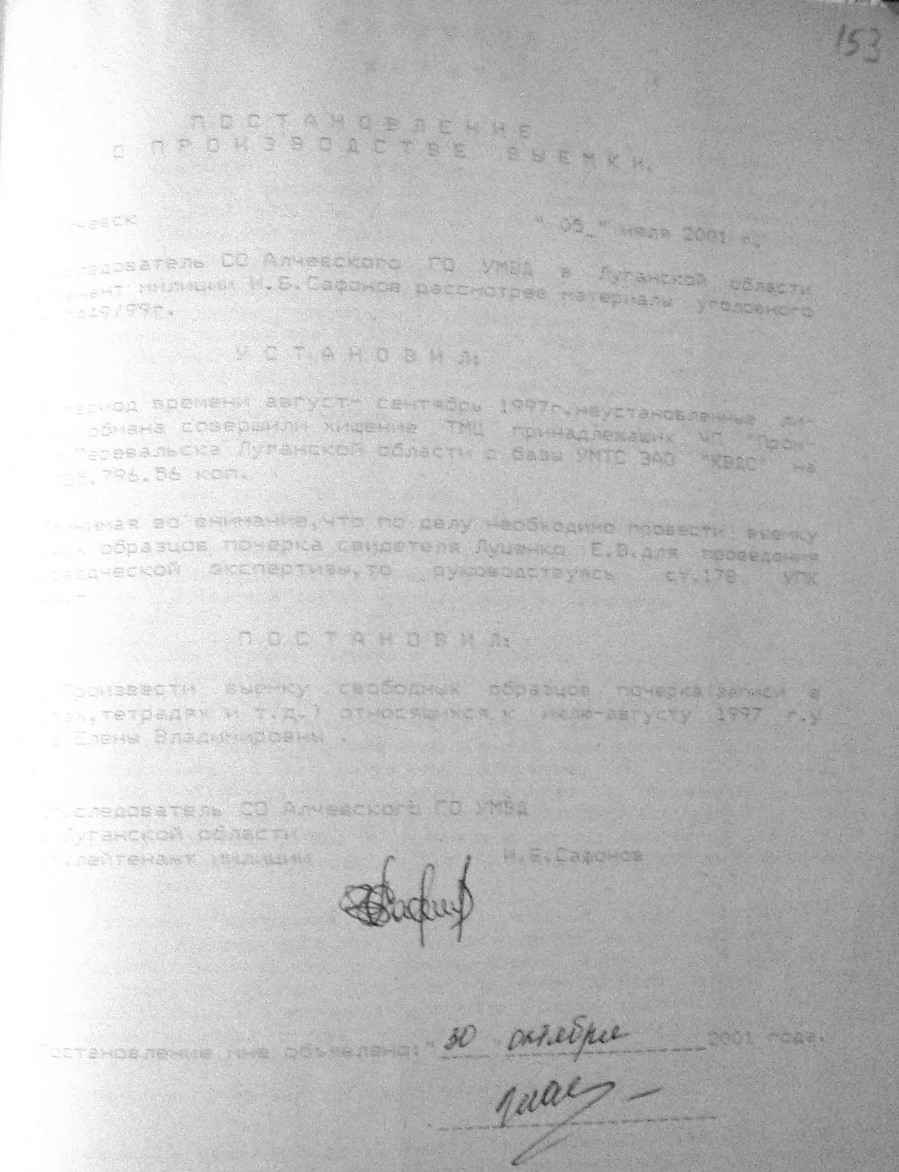 153
П О С Т А Н О В Л Е Н И Е
О П Р О И З В О Д С Т В Е В Ы Е М К И.
Алчевск " 05_" июля 2001 г.
следователь СО Алчевского ГО УМВД в Луганской области
милиции И.Б.Сафонов рассмотрев материалы уголовного
449/99г.
У С Т А Н О В И Л:
период времени август- сентябрь 1997г.неустановленные ли-
обмана совершили хищение ТМЦ принадлежащих ЧП "Пром-
Перевальска Луганской области с базы УМТС ЗАО "КВДС" на
796.56 коп.
во внимание,что по делу необходимо провести выемку
образцов почерка свидетеля Луценко Е.В.для проведения
экспертизы,то руководствуясь ст.178 УПК
П О С Т А Н О В И Л:
Произвести выемку свободных образцов почерка(записи в
тетрадях и т.д.) относящихся к июлю-августу 1997 г.у
Елены Владимировны .
следователь СО Алчевского ГО УМВД
Луганской области
лейтенант милиции И.Б.Сафонов
Постановление мне объявлено:" 30 " октября 2001 года.